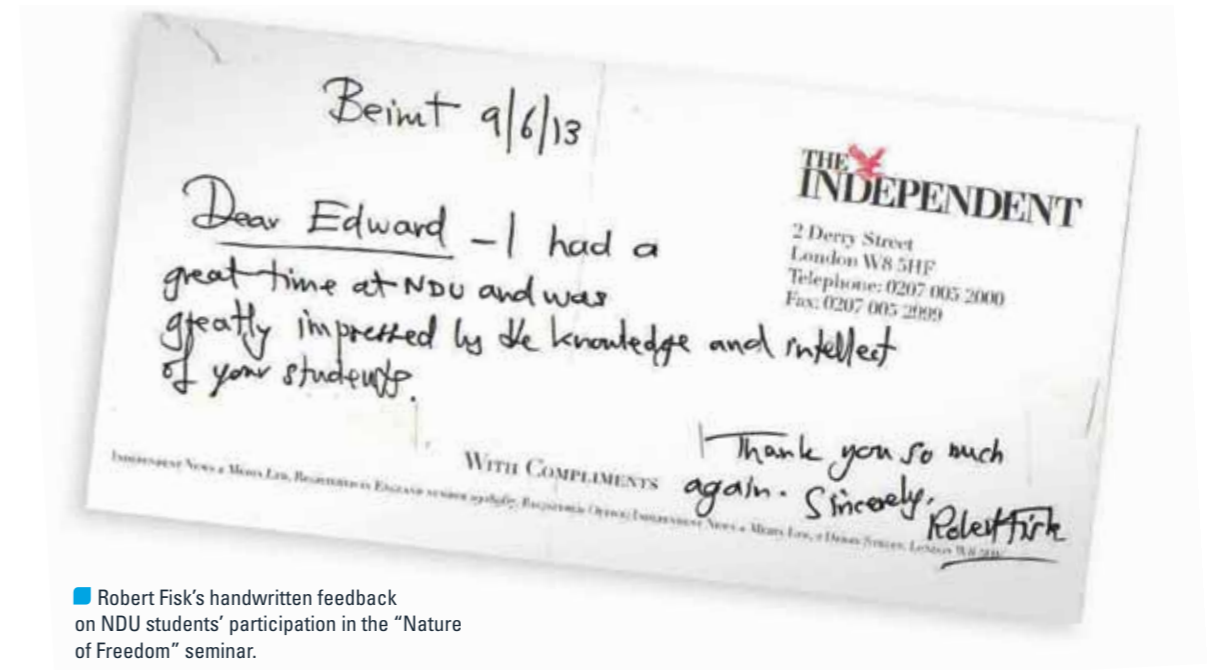 Beirut 9/6/13
THE
INDEPENDENT
2 Derry Street
London W8 5HF
Telephone: 0207 005 2000
Fax: 0207 005 2999
Dear Edward – I had a
great time at NDU and was
greatly impressed by the knowledge and intellect
of your students.
Thank you so much
again. Sincerely,
Robert Fisk
WITH COMPLIMENTS
INDEPENDENT NEWS & MEDIA LTD, REGISTERED IN ENGLAND NUMBER REGISTERED OFFICE: INDEPENDENT NEWS & MEDIA LTD, 2 DERRY STREET, LONDON W8 5HF
Robert Fisk's handwritten feedback
on NDU students' participation in the “Nature
of Freedom” seminar.